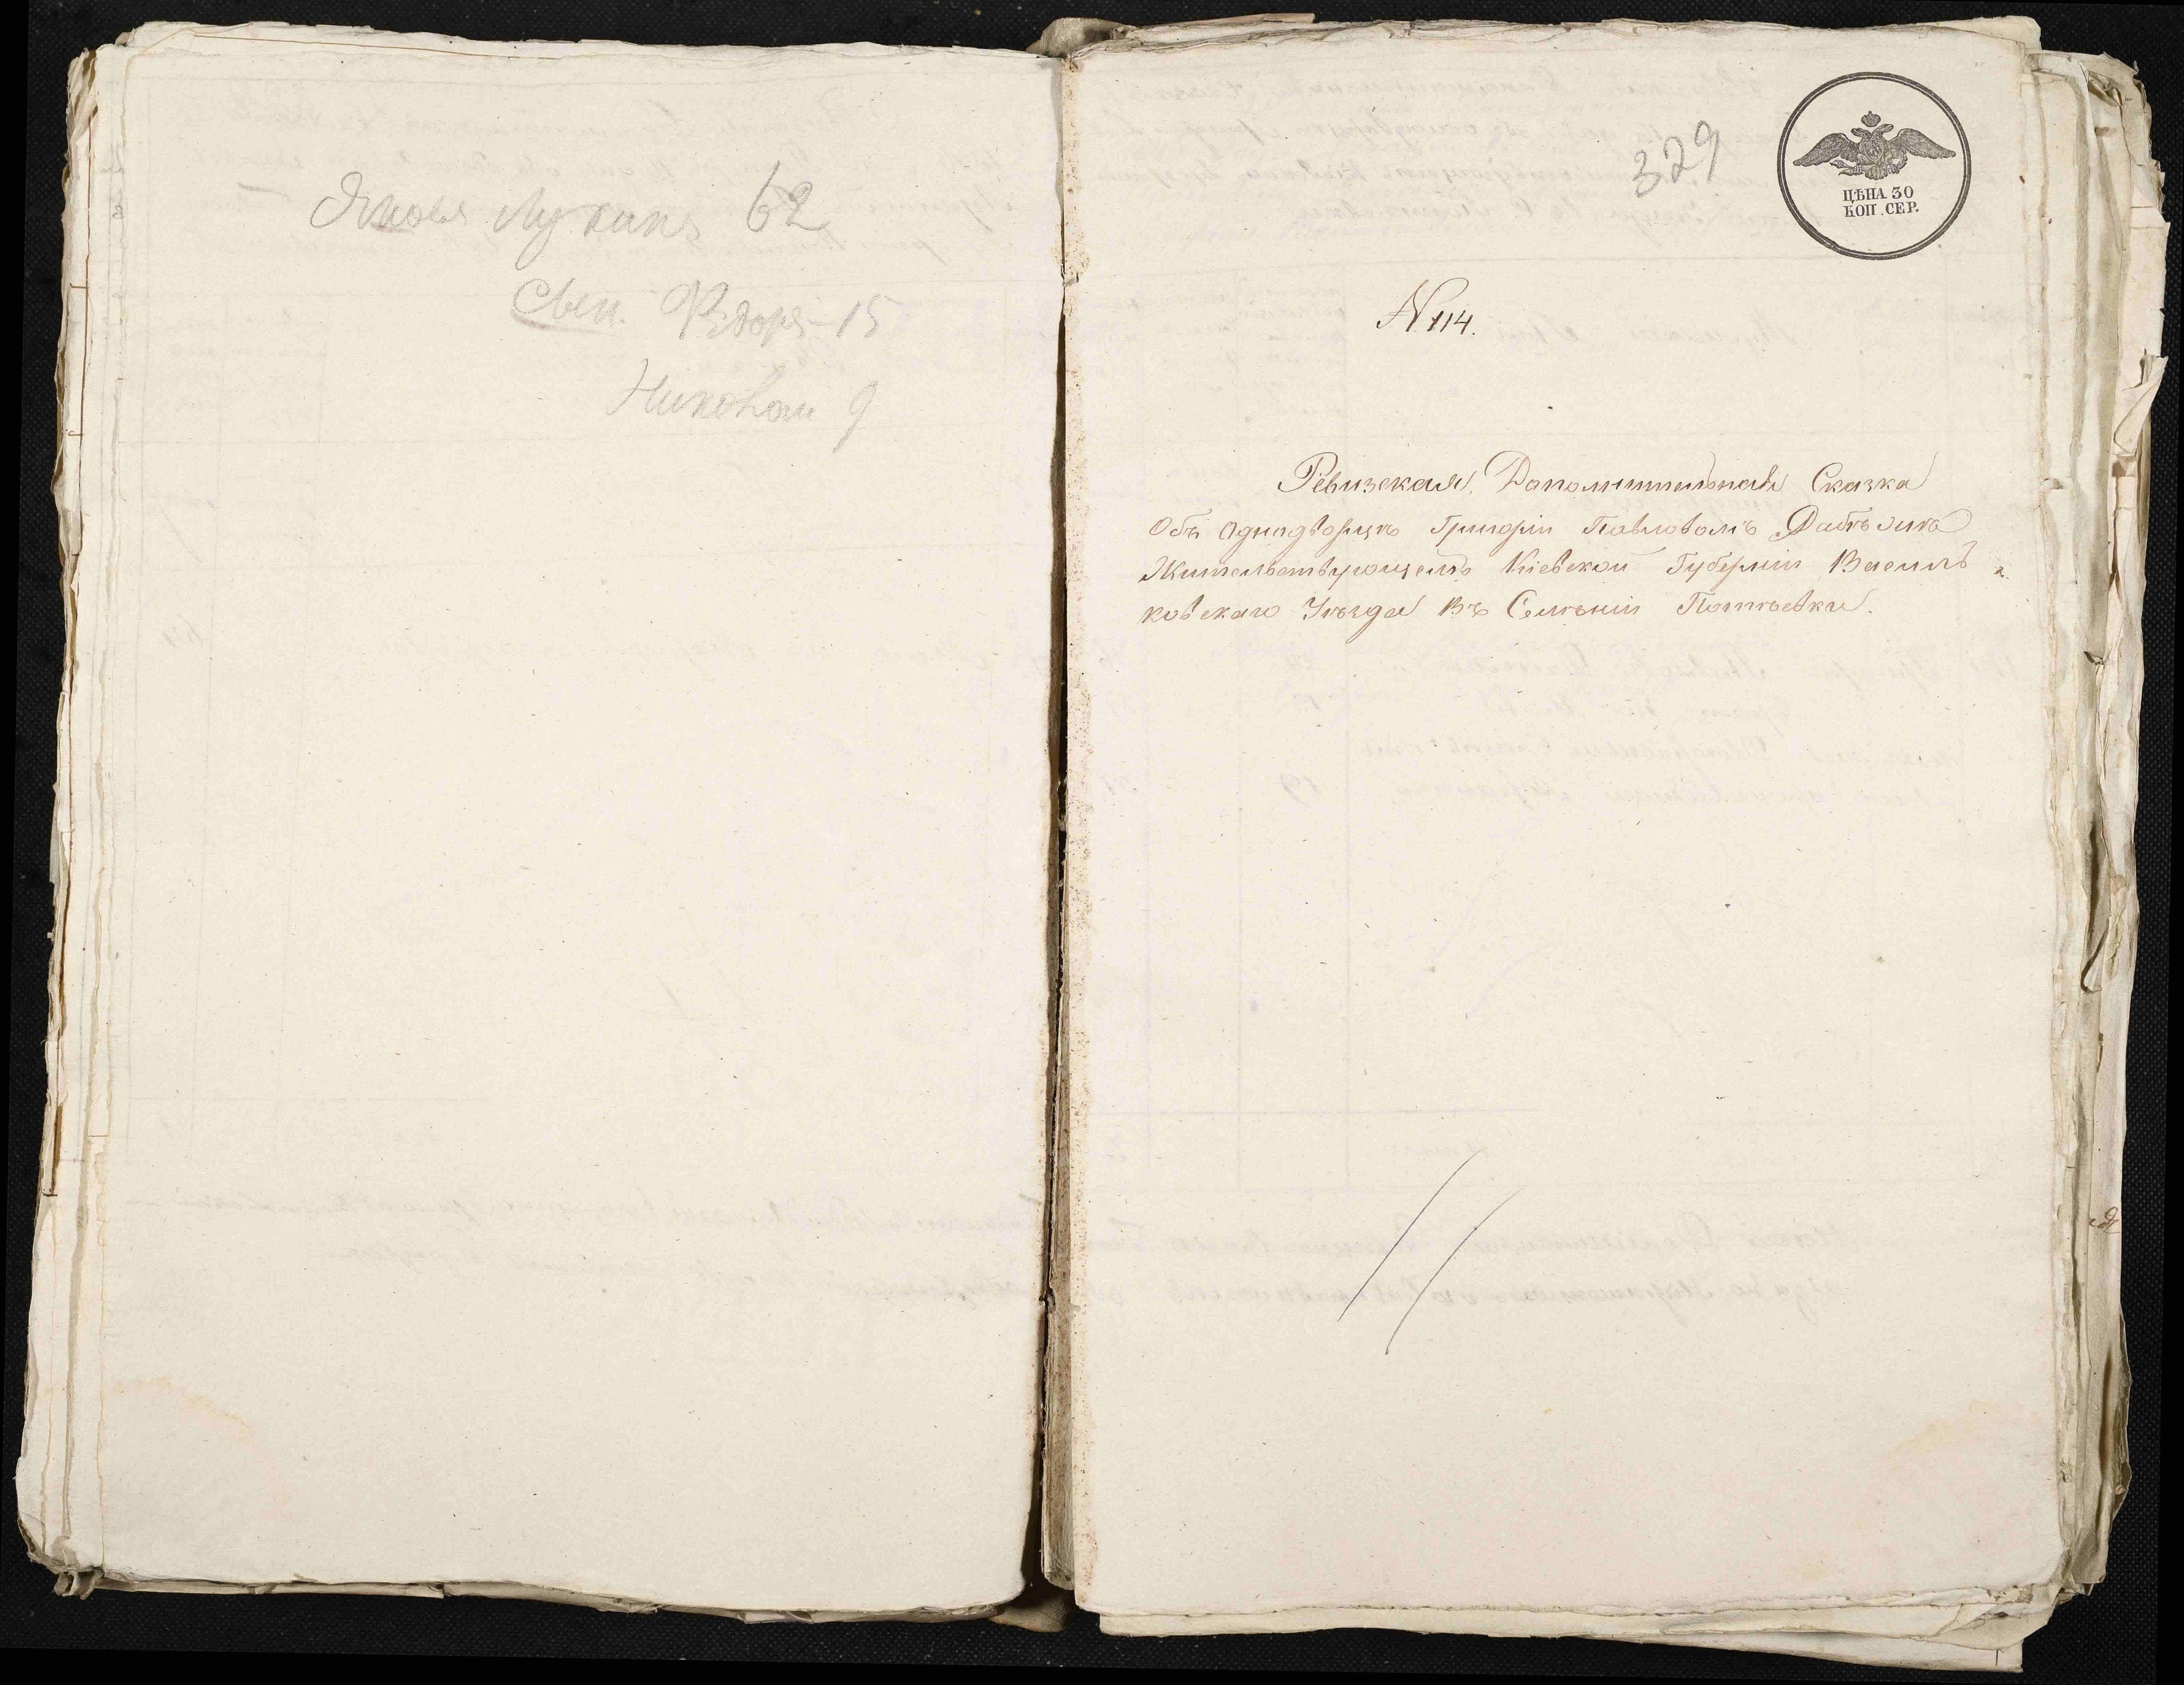 Яковъ Лукинъ 62
Сын. Ѳедоръ - 15
Николай 9
329
ЦѢНА 30
КОП. СЕР.
N 114.
Ревизская Дополнительная Сказка
Объ Однодворцѣ Григоріи Павловомъ
Жительствующемъ Кіевской Губерніи Василь
ковскаго Уѣзда Въ Селѣніи Потѣевки.